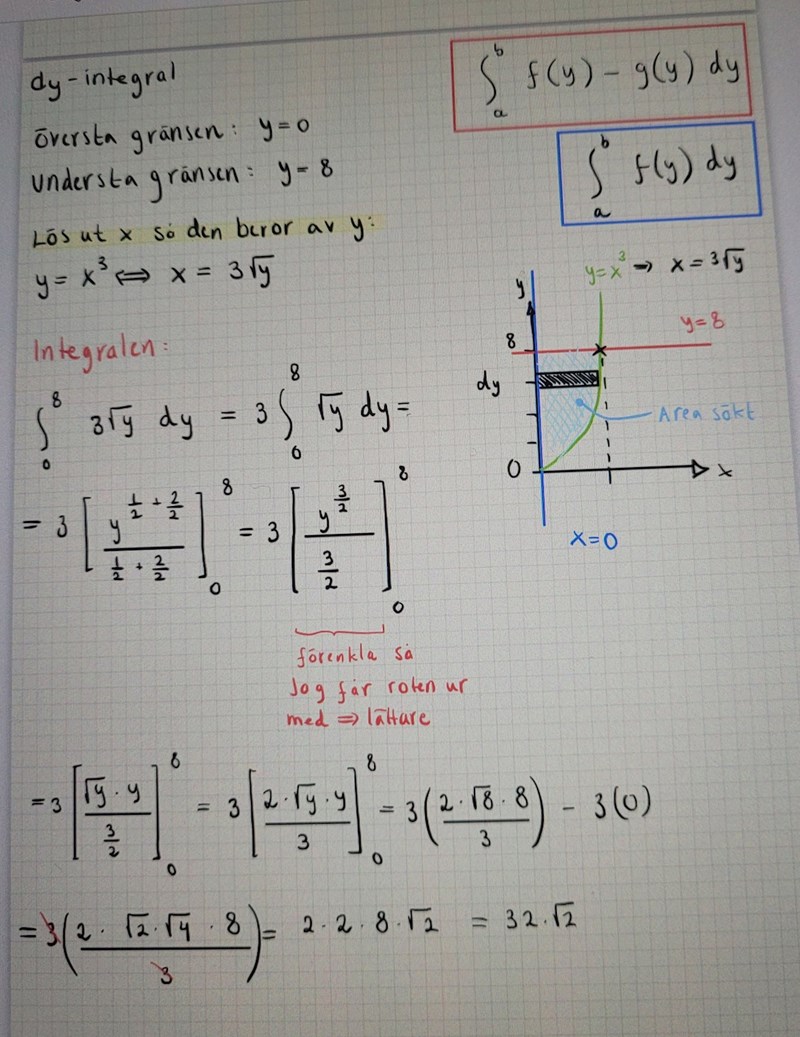 dy-integral
∫₀ᵇ f(y) - g(y) dy
Översta gränsen: y=0
Understa gränsen: y=8
∫ₐᵇ f(y) dy
Lös ut x så den beror av y:
y = x³ ⟺ x = 3√y
y=x³ ⇒ x = 3√y
y
8
y=8
dy
Area sökt
0
x
x=0
Integralen:
∫₀⁸ 3√y dy = 3∫₀⁸ √y dy =
= 3 [y^(1/2 + 2/2) / (1/2 + 2/2)]₀⁸ = 3 [y^(3/2) / (3/2)]₀⁸
förenkla så
Jag får roten ur
med ⇒ lättare
= 3 [√y · y / (3/2)]₀⁸ = 3 [2 · √y · y / 3]₀⁸ = 3 (2 · √8 · 8 / 3) - 3(0)
= 3 (2 · √2 · √4 · 8 / 3) = 2 · 2 · 8 · √2 = 32 · √2